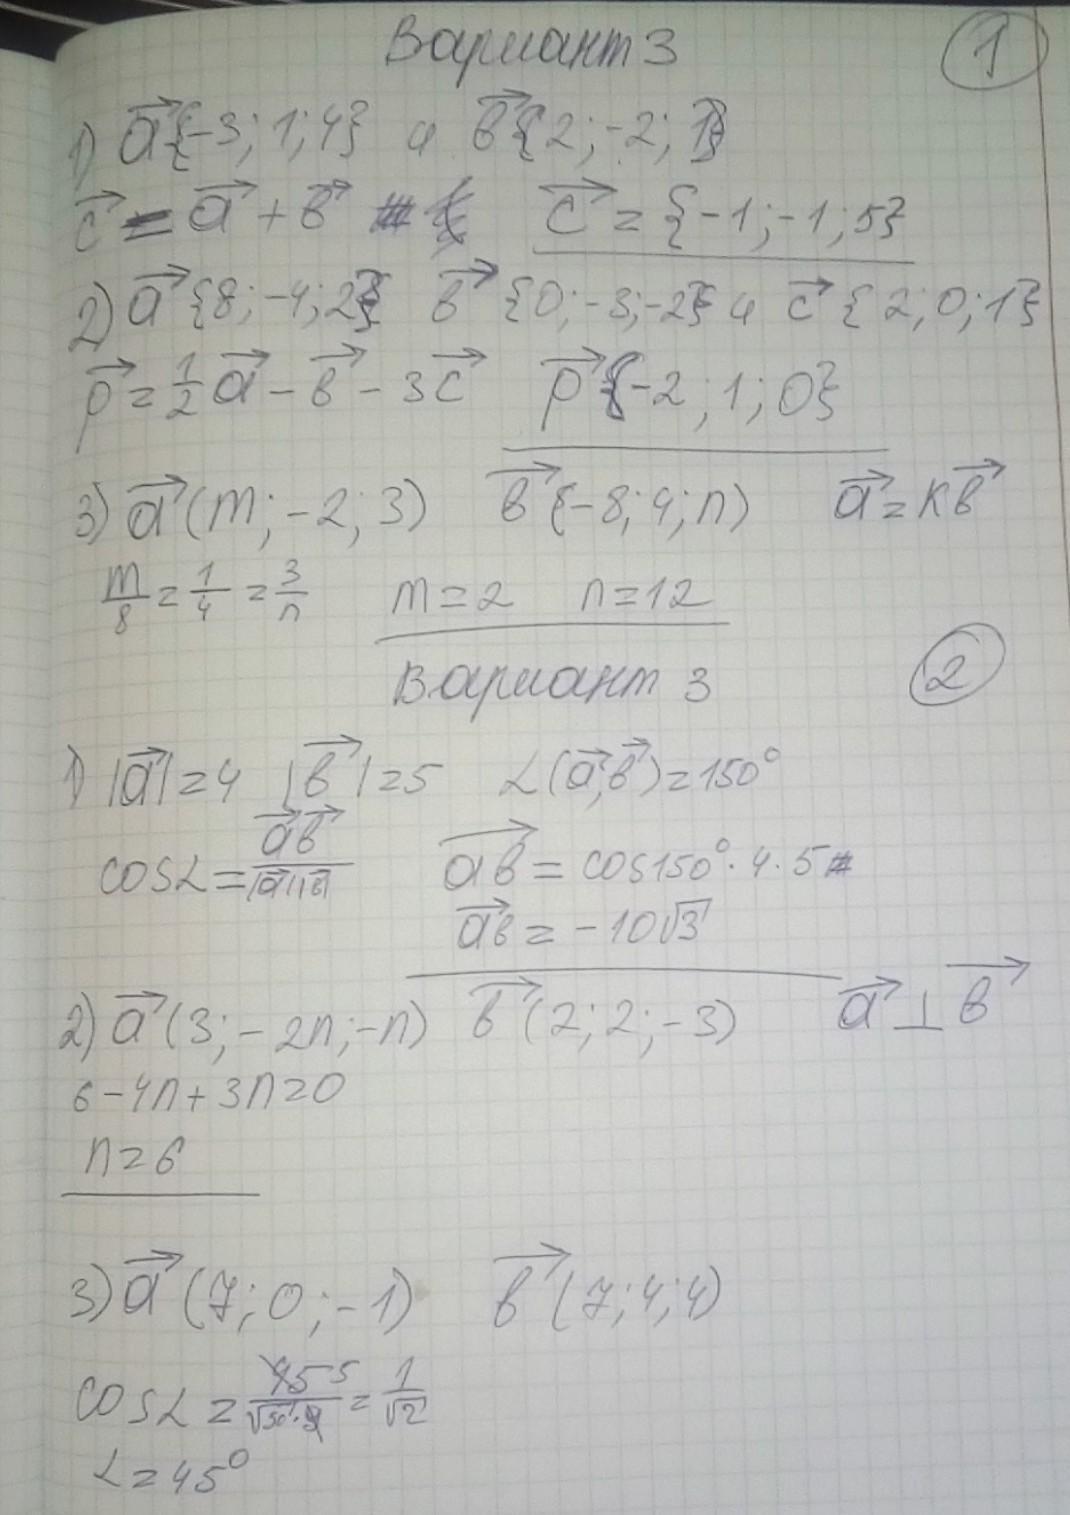 Вариант 3 1
1) a⃗{-3; 1; 4} и b⃗{2; -2; 1}
c⃗ = a⃗ + b⃗ c⃗ = {-1; -1; 5}
2) a⃗{8; -4; 2} b⃗{0; -3; -2} и c⃗{2; 0; 1}
p⃗ = 1/2 a⃗ - b⃗ - 3c⃗ p⃗{-2; 1; 0}
3) a⃗(m; -2; 3) b⃗{-8; 4; n) a⃗ = kb⃗
m/8 = 1/4 = 3/n m = 2 n = 12
Вариант 3 2
1) |a⃗| = 4 |b⃗| = 5 ∠(a⃗,b⃗) = 150°
cos∠ = a⃗b⃗/|a⃗||b⃗| ab⃗ = cos150° · 4 · 5
ab⃗ = -10√3
2) a⃗(3; -2n; -n) b⃗(2; 2; -3) a⃗ ⊥ b⃗
6 - 4n + 3n = 0
n = 6
3) a⃗(7; 0; -1) b⃗(7; 4; 4)
cos∠ = 45 5/√50 · 9 = 1/√2
∠ = 45°